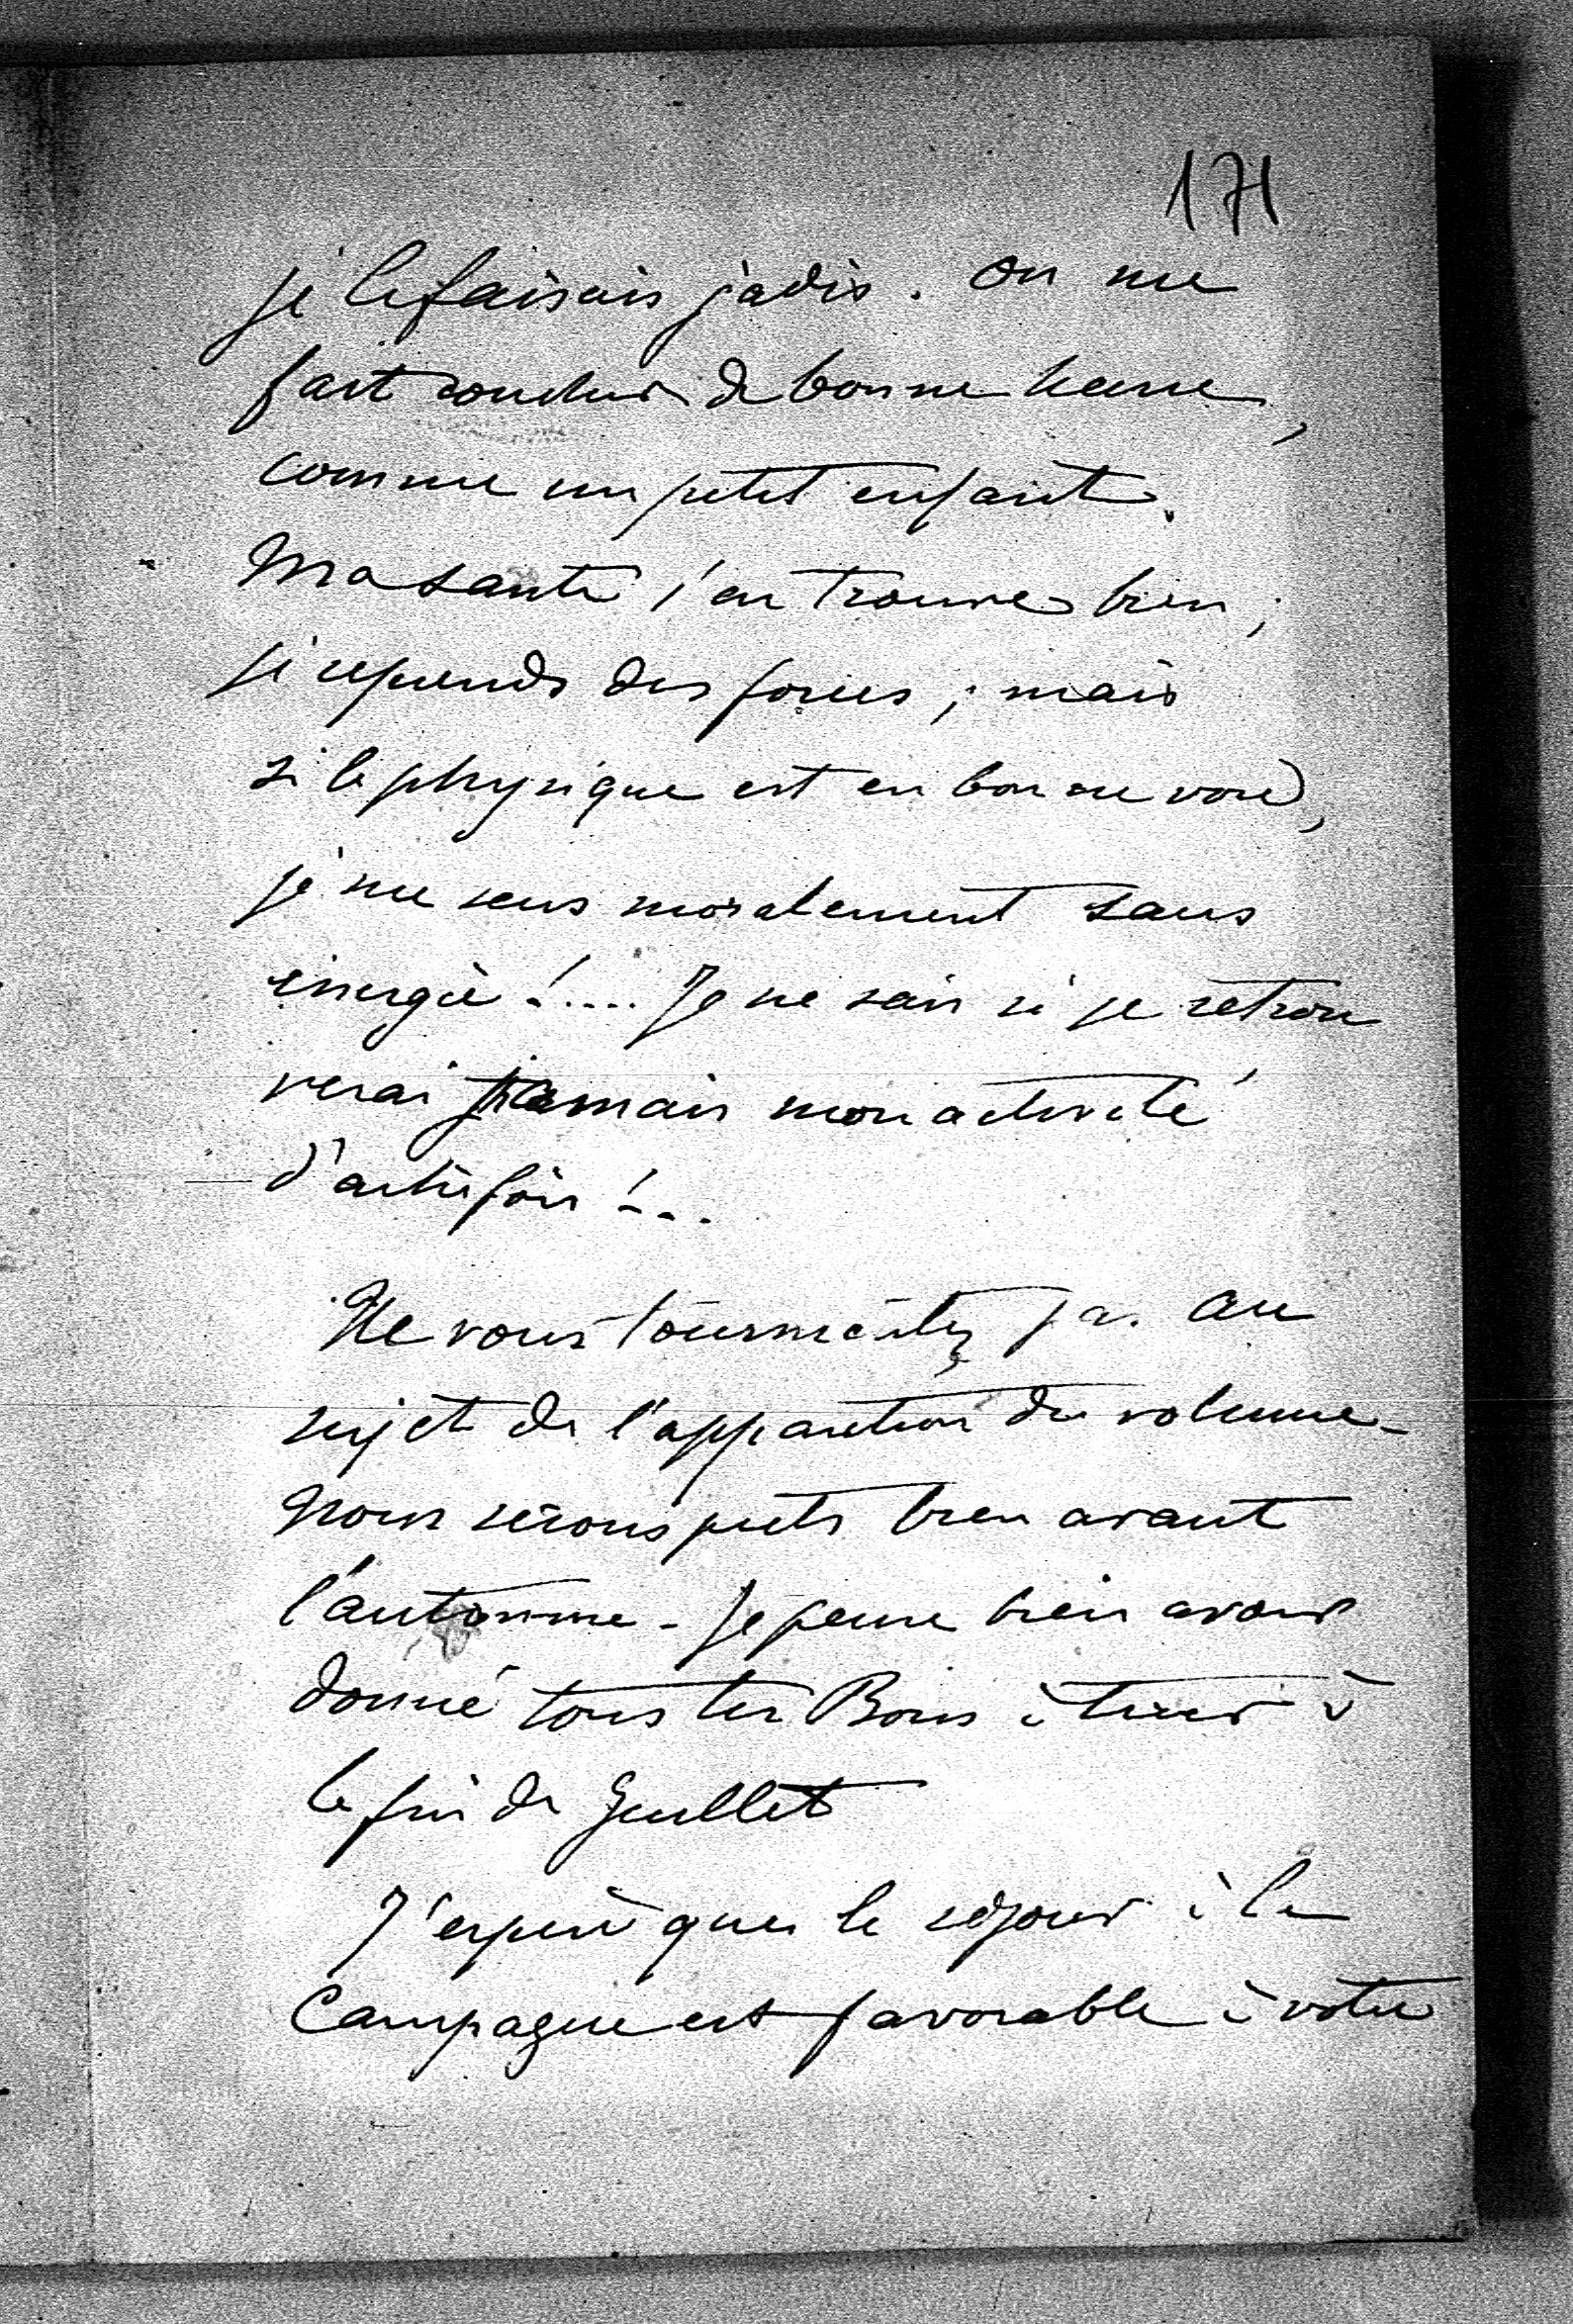 171
je le faisais jadis. On me
fait coucher de bonne heure,
comme un petit enfant.
Ma santé s'en trouve bien ;
je reprends des forces ; mais
si le physique est en bonne voie,
je me sens moralement sans
énergie !.... Je ne sais si je retrou
verai jamais mon activité
d'autrefois !...
Ne vous tourmentez pas au
sujet de l'apparition du volume -
Nous serons prêts bien avant
l'automne - Je pense bien avoir
donné tous les Bons à tirer à
la fin de Juillet
J'espère que le séjour à la
Campagne est favorable à votre